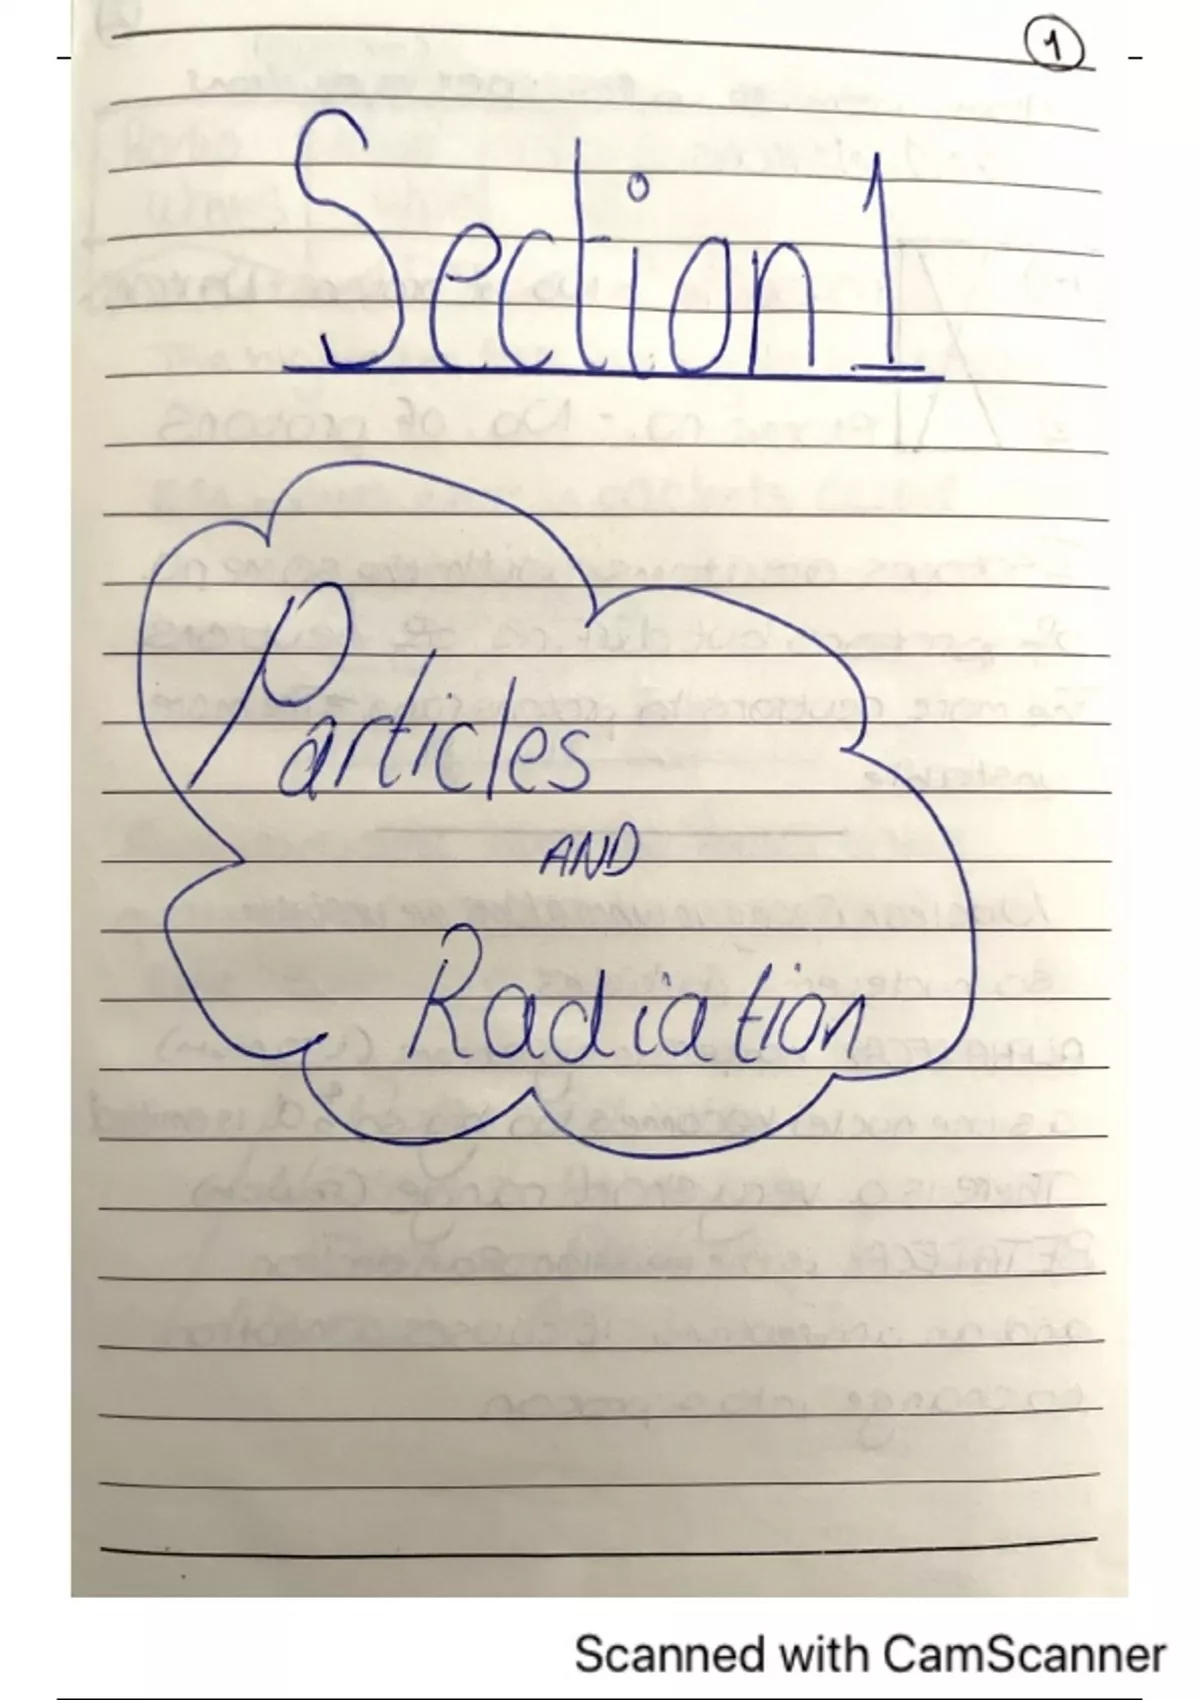 1
Section 1
Particles
AND
Radiation
Scanned with CamScanner